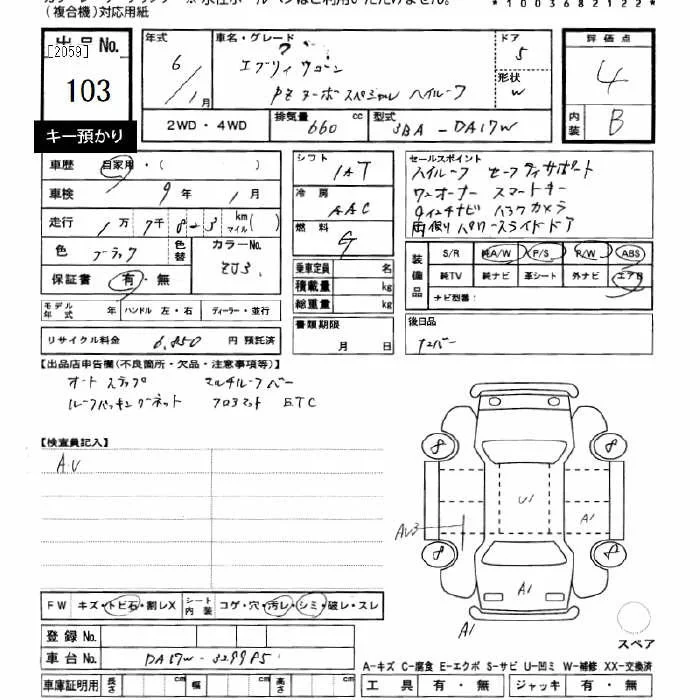 (複合機)対応用紙
*1003682122**
出品No. [2059]
103
キー預かり
年式
6/1月
車名・グレード
エブリィワゴン
PZターボスペシャル ハイルーフ
ドア 5
形状 W
評価点
4
内装 B
2WD・4WD
排気量 660 cc
型式 3BA-DA17W
車歴 自家用・( )
車検 9年 1月
走行 1万7千8 3 km マイル( )
色 ブラック
色替
カラーNo. ZJ3
保証書 有・無
モデル年式 年 ハンドル 左・右 ディーラー・並行
リサイクル料金 6,850 円 預託済
シフト
IAT
冷房
AAC
燃料
G
乗車定員 名
積載量 kg
総重量 kg
書類期限
月 日
セールスポイント
ハイルーフ セーフティサポート
ワンオーナー スマートキー
9インチナビ バックカメラ
両側パワースライドドア
装備品
S/R 純A/W P/S P/W ABS
純TV 純ナビ 革シート 外ナビ エアB
ナビ型番:
後日品
ナンバー
【出品店申告欄(不良箇所・欠品・注意事項等)】
オートステップ マルチルーフバー
フロアマット ETC
【検査員記入】
AU
8 8
U1
AU3
A1
8 8
A1
A1
スペア
FW キズ・トビ石・割レX シート内装 コゲ・穴・汚レ・シミ・破レ・スレ
登録No.
車台No. DA17W-3299P5
車庫証明用 長さ cm 幅 cm 高さ cm
A-キズ C-腐食 E-エクボ S-サビ U-凹ミ W-補修 XX-交換済
工具 有・無 ジャッキ 有・無